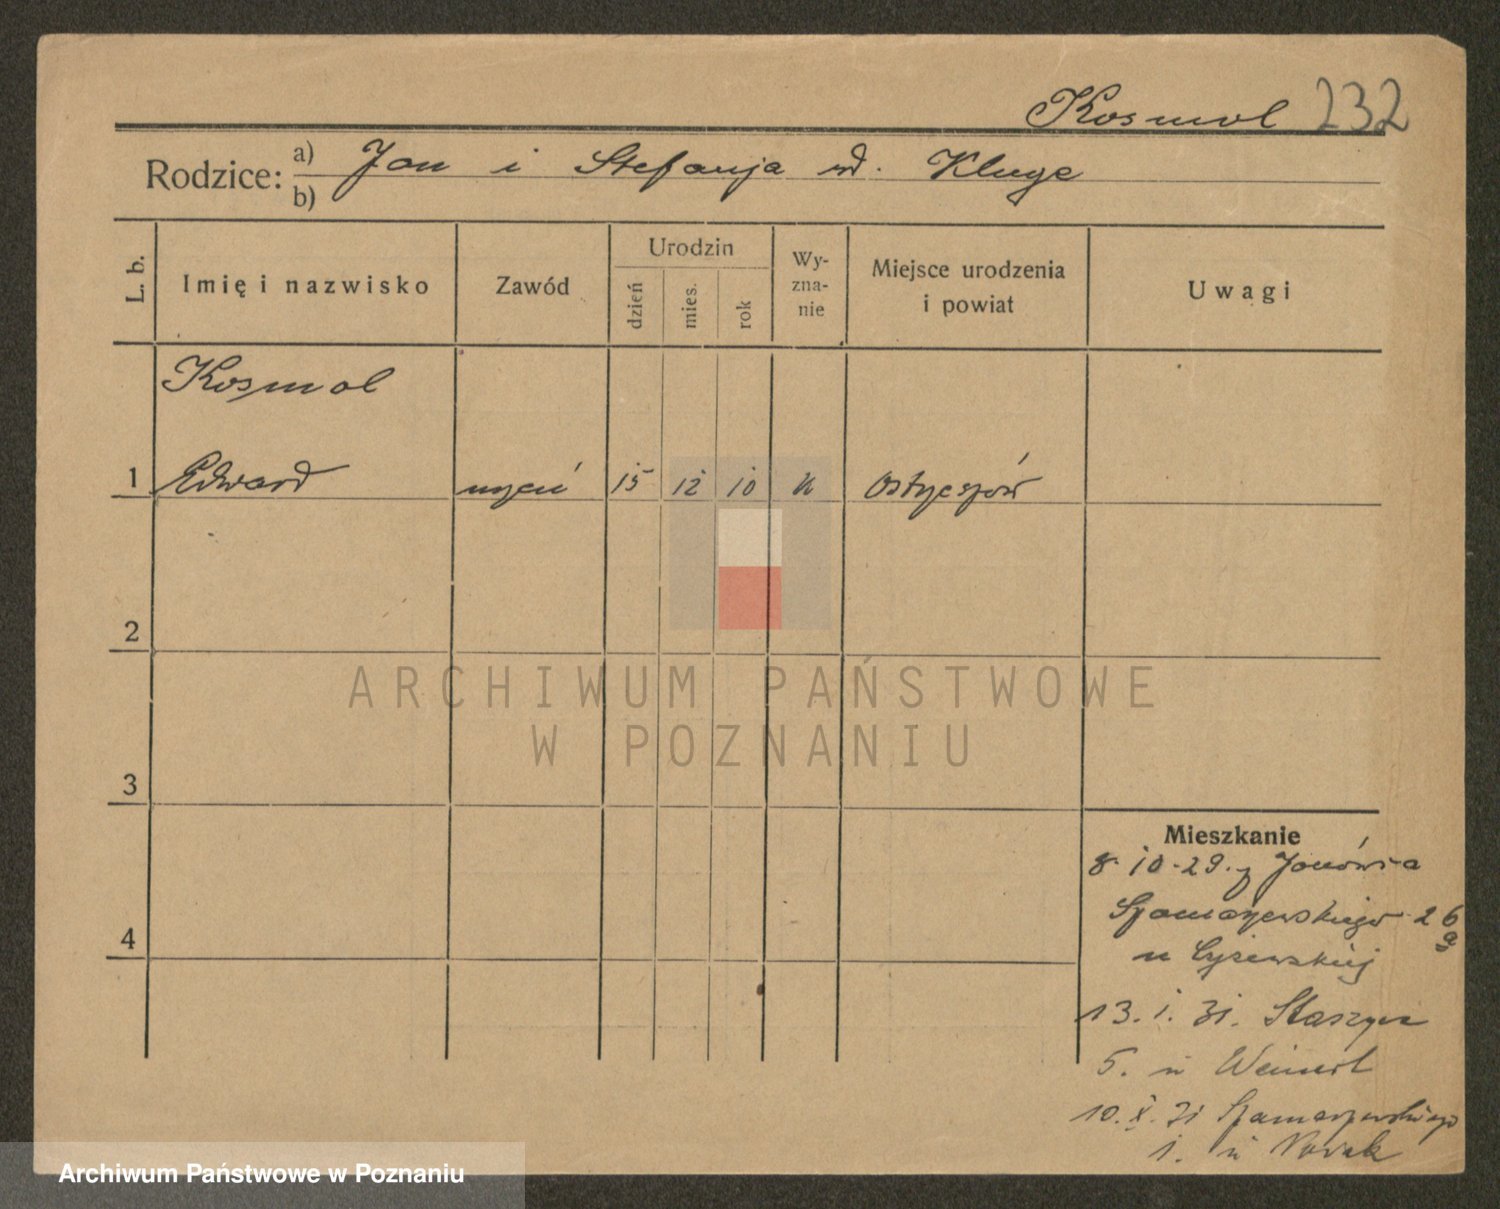 Kosmol 232
Rodzice: a) Jan i Stefanja wd. Kluge
b)
L. b.
Imię i nazwisko
Zawód
Urodzin
dzień
mies.
rok
Wy-
zna-
nie
Miejsce urodzenia
i powiat
Uwagi
Kosmol
1 Edward uczeń 15 12 10 k
2
3
4
ARCHIWUM PAŃSTWOWE
W POZNANIU
Mieszkanie
8. 10. 29. z Janówca
Szamarzewskiego 26
a
u
13. I. 31. Staszyca
5. u Weinert
10. X. 31 Szamarzewskiego
1. u Nowak
Archiwum Państwowe w Poznaniu